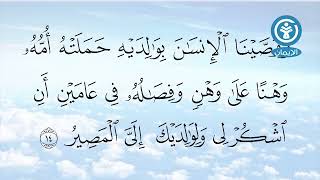 وَوَصَّيْنَا ٱلْإِنسَٰنَ بِوَٰلِدَيْهِ حَمَلَتْهُ أُمُّهُۥ
وَهْنًا عَلَىٰ وَهْنٍ وَفِصَٰلُهُۥ فِى عَامَيْنِ أَنِ
ٱشْكُرْ لِى وَلِوَٰلِدَيْكَ إِلَىَّ ٱلْمَصِيرُ ١٤
الإيمان